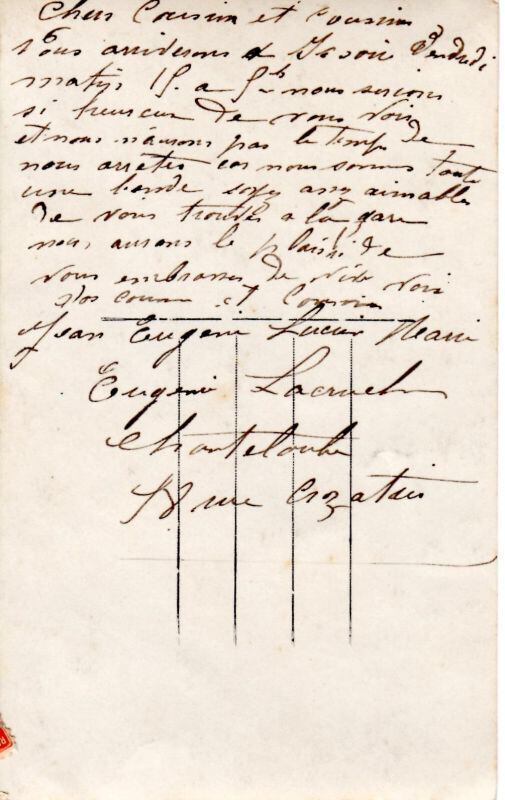 Chers Cousin et Cousine
nous arriverons a Vendredi
matin 15. a 5h nous serions
si heureux de vous voir
et nous n'aurons pas le temps de
nous arrêtes car nous sommes toute
une bande soyez assez aimables
de vous trouver a la gare
nous aurons le plaisir de
vous embrasser de vive voix
Vos cousine et Cousin
Jean Eugenie Lucien Marie
Eugenie
Chanteloube
18 rue Crozatier